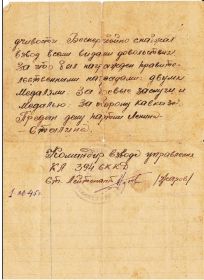 дчивости Бесперебойно снабжал
взвод всеми видами довольствия.
За что был награжден прави-
тельственными наградами: двумя
Медалями За боевые заслуги и
Медалью. За оборону кавказа.
Предан делу партии Ленина-
Сталина.
Командир взвода управления
394
Ст. Лейтенант